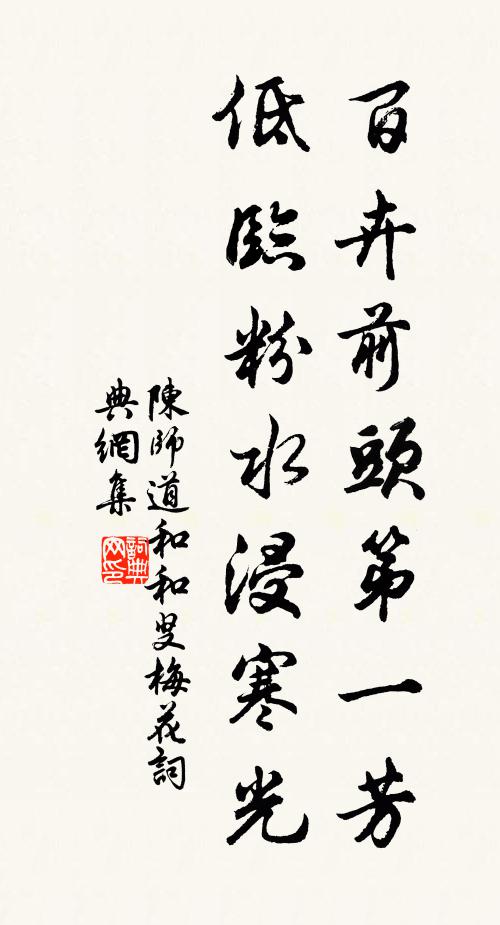 百卉前頭第一芳
低臨粉水浸寒光
陳師道和和叟梅花詞
典網集
詞典網印